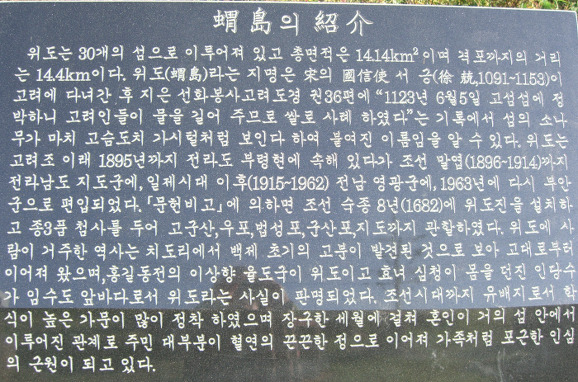 蝟島의 紹介
위도는 30개의 섬으로 이루어져 있고 총면적은 14.14km²이며 격포까지의 거리
는 14.4km이다. 위도(蝟島)라는 지명은 宋의 國信使 서 긍(徐 兢,1091~1153)이
고려에 다녀간 후 지은 선화봉사고려도경 권36편에 "1123년 6월5일 고섬섬에 정
박하니 고려인들이 물을 길어 주므로 쌀로 사례 하였다."는 기록에서 섬의 소나
무가 마치 고슴도치 가시털처럼 보인다 하여 붙여진 이름임을 알 수 있다. 위도는
고려조 이래 1895년까지 전라도 부령현에 속해 있다가 조선 말엽(1896~1914)까지
전라남도 지도군에, 일제시대 이후(1915~1962) 전남 영광군에, 1963년에 다시 부안
군으로 편입되었다.「문헌비고」에 의하면 조선 숙종 8년(1682)에 위도진을 설치하
고 종3품 첨사를 두어 고군산,우포,법성포,군산포,지도까지 관할하였다. 위도에 사
람이 거주한 역사는 치도리에서 백제 초기의 고분이 발견된 것으로 보아 고대로부터
이어져 왔으며,홍길동전의 이상향 율도국이 위도이고 효녀 심청이 몸을 던진 인당수
가 임수도 앞바다로서 위도라는 사실이 판명되었다. 조선시대까지 유배지로서 학
식이 높은 가문이 많이 정착 하였으며 장구한 세월에 걸쳐 혼인이 거의 섬 안에서
이루어진 관계로 주민 대부분이 혈연의 끈끈한 정으로 이어져 가족처럼 포근한 인심
의 근원이 되고 있다.